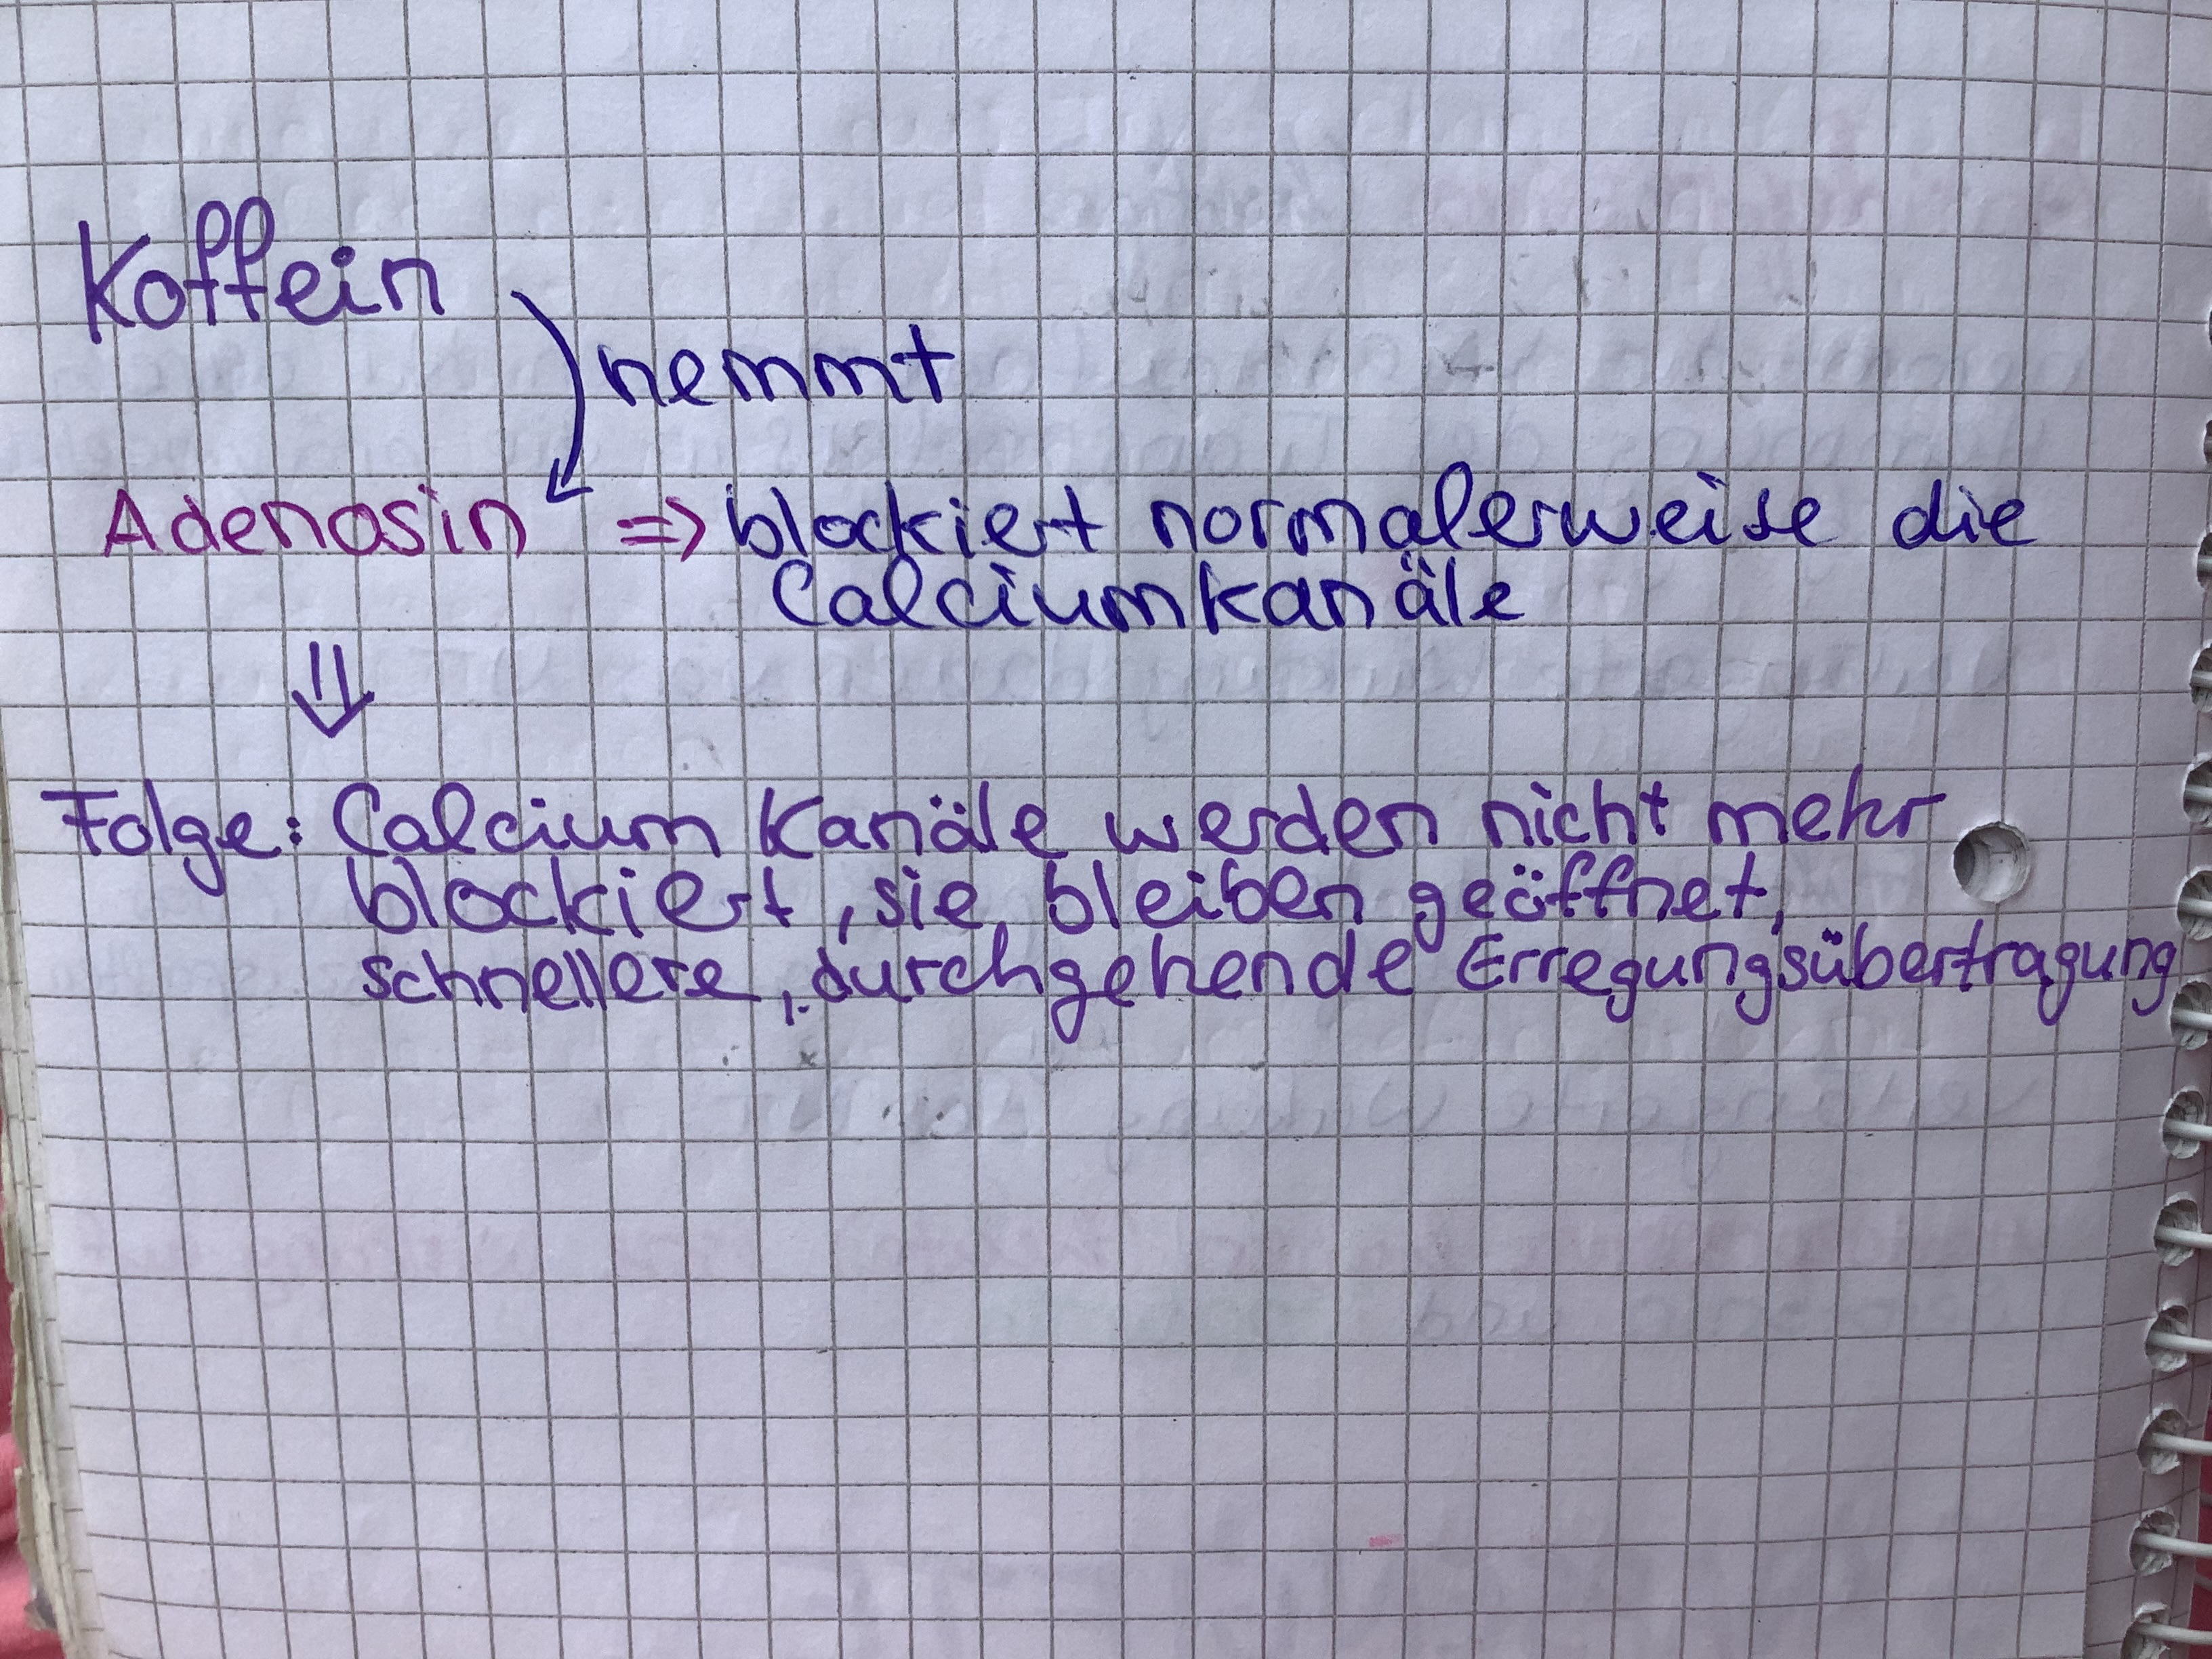 Koffein
nemmt
Adenosin => blockiert normalerweise die
Calciumkanäle
Folge: Calcium Kanäle werden nicht mehr
blockiert, sie bleiben geöffnet,
schnellere, durchgehende Erregungsübertragung